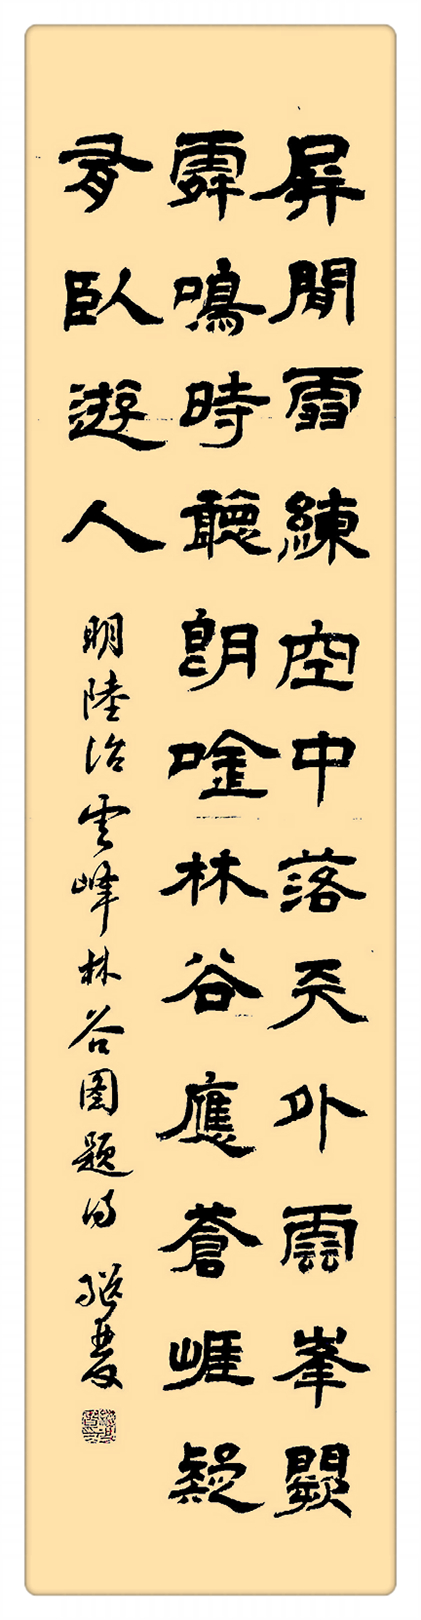 屏閒雪練空中落天外雲峯闕
鳴時聽朗唫林谷應蒼崕疑
有臥遊人
明陸治雲峰林谷圖題詩